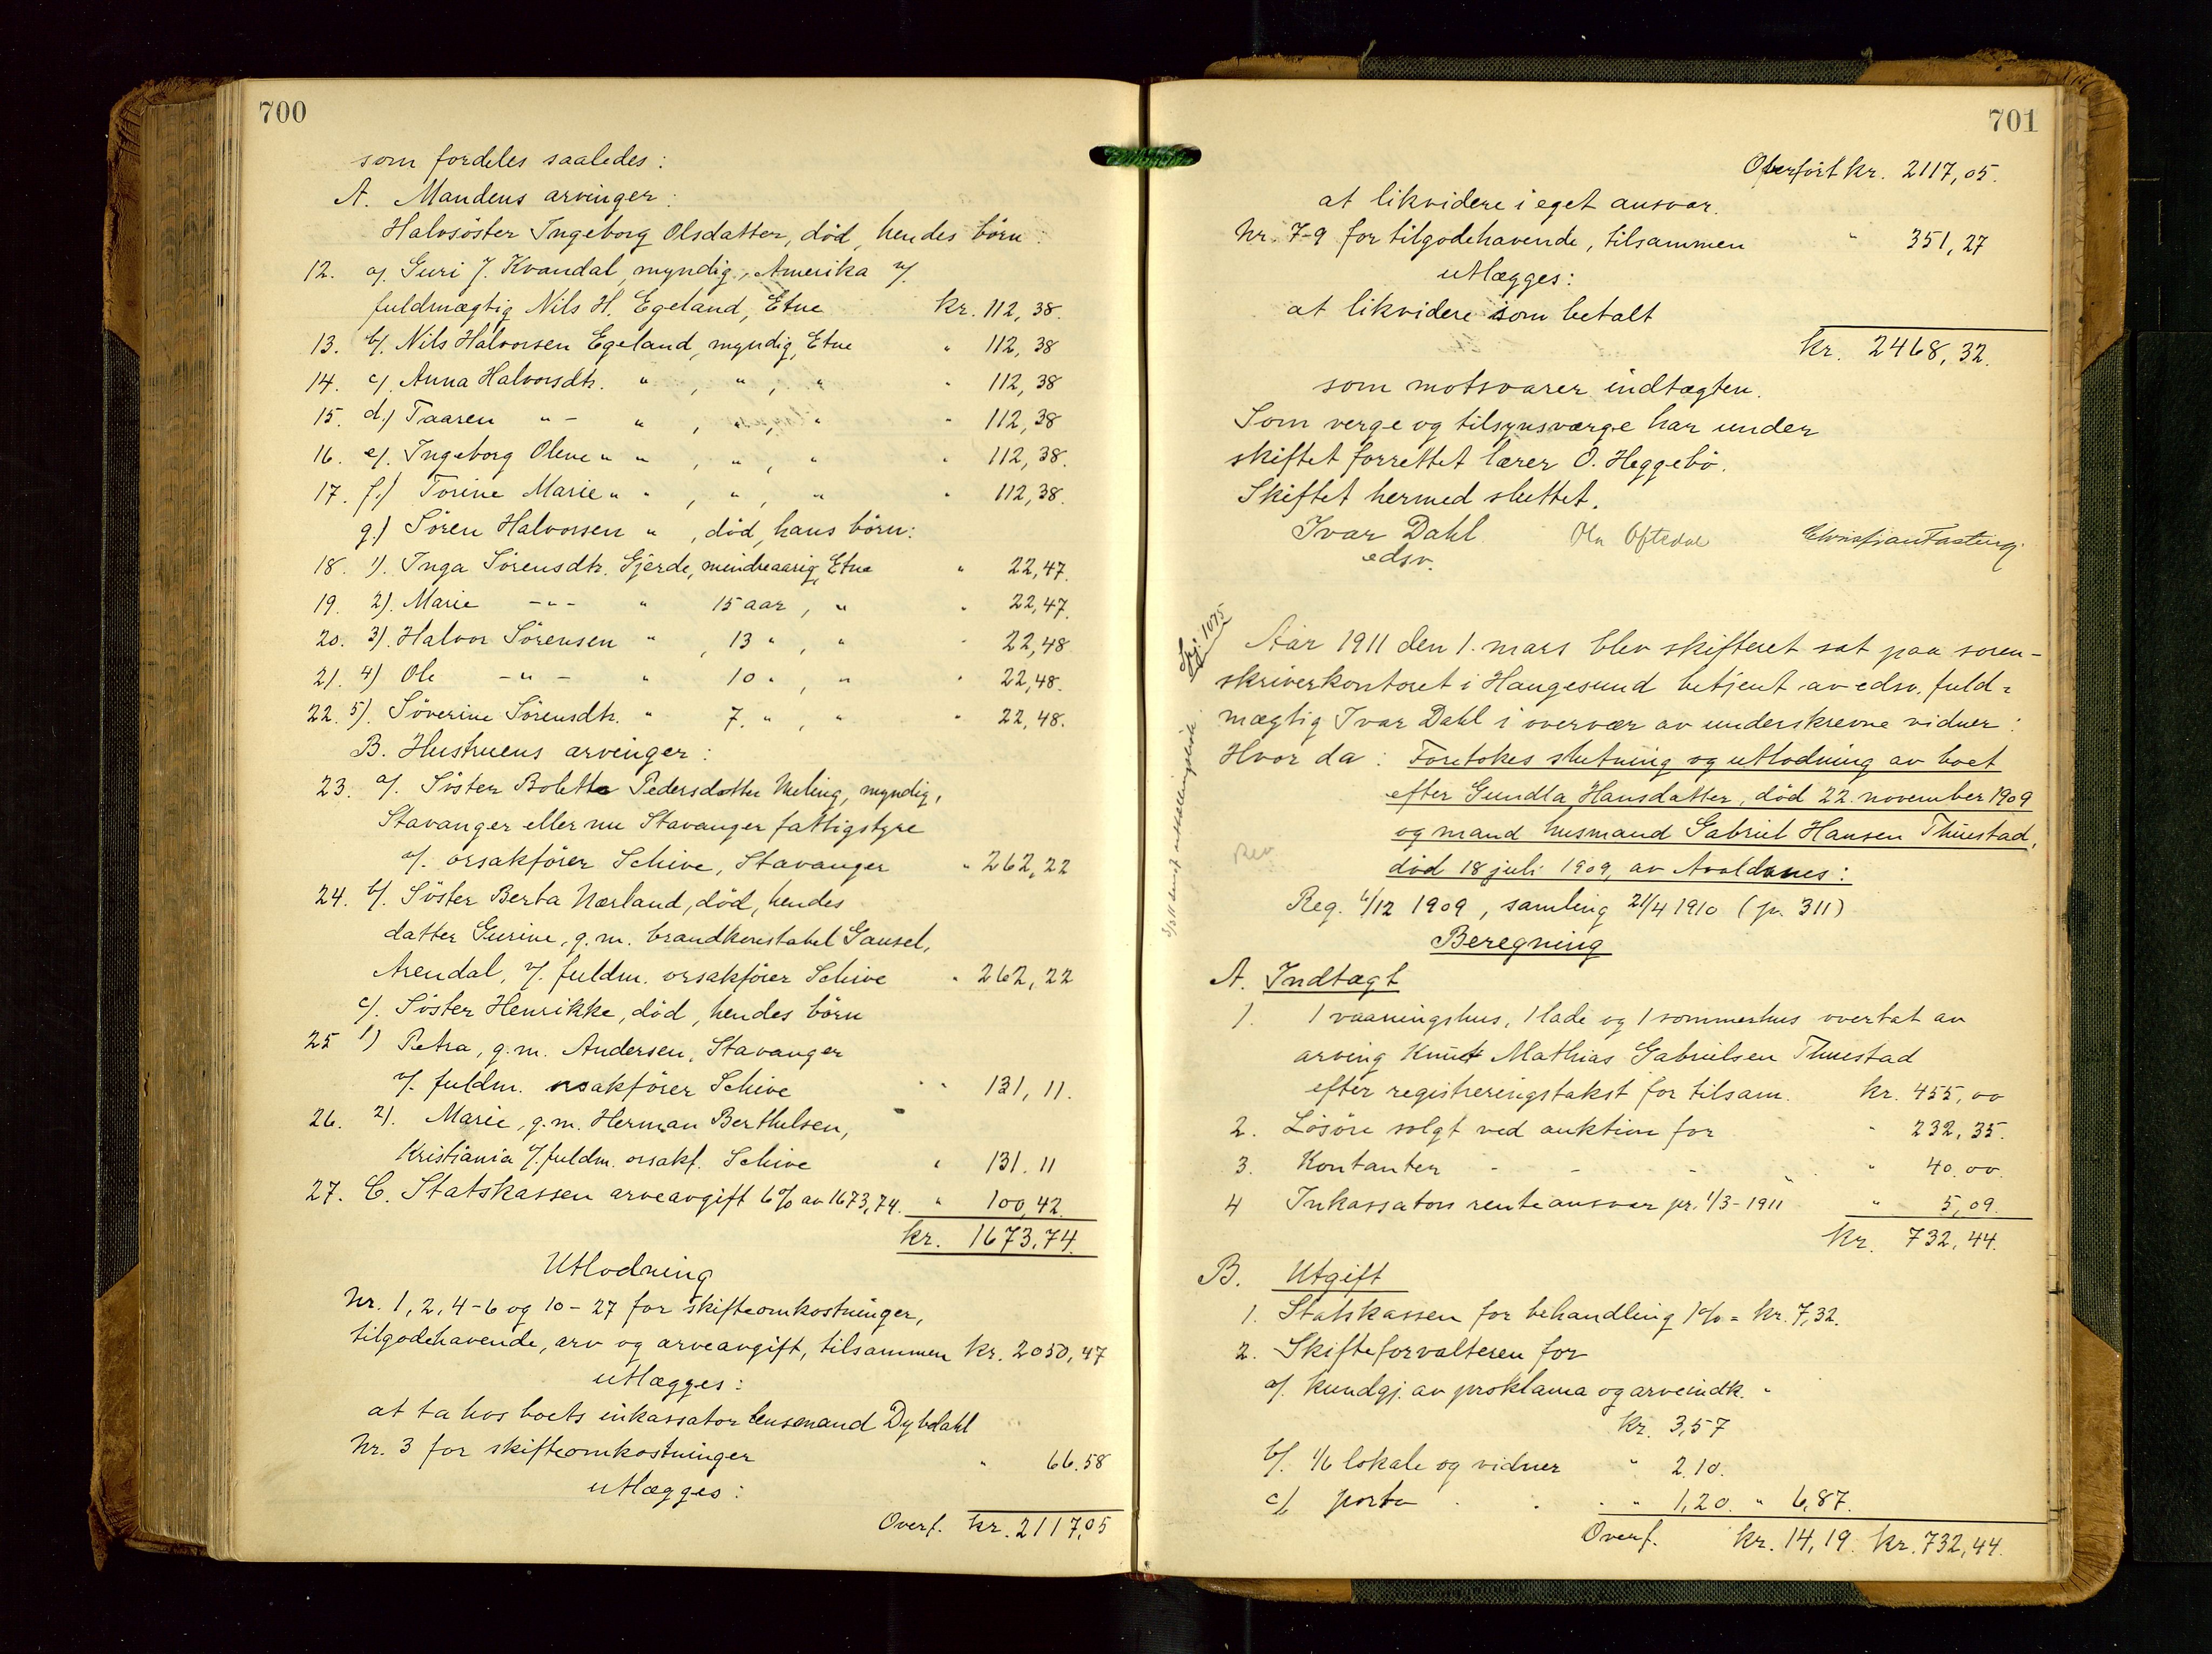 700
som fordeles saaledes:
A. Mandens arvinger:
Halvsöster Ingeborg Olsdatter, död, hendes börn:
12. a/. Guri J. Kvandal, myndig, Amerika v/.
fuldmægtig Nils H. Egeland, Etne kr. 112,38.
13. b/. Nils Halvorsen Egeland, myndig, Etne " 112,38
14. c/. Anna Halvorsdtr. " , " , " " 112,38
15. d.) Taaren " - " , " , " " 112,38
16. e/. Ingeborg Olene " " , " , " " 112,38.
17. f.) Torine Marie " " , " , " " 112,38.
g.) Sören Halvorsen " , död, hans börn:
18. 1). Inga Sörensdtr. Gjerde, mindreaarig, Etne " 22,47.
19. 2). Marie - " - " 15 aar, " " 22,47.
20. 3). Halvor Sörensen " , 13 " , " " 22,48
21. 4) Ole - " - " 10 " , " " 22,48.
22. 5). Söverine Sörensdtr. " 7. " , " " 22,48.
B. Hustruens arvinger:
23. a/. Söster Bolette Pedersdatter Meling, myndig,
Stavanger eller nu Stavanger fattigstyre
v/. orsakförer Schive, Stavanger " 262,22
24. b/. Söster Berta Nærland, död, hendes
datter Gurine, g.m. brandkonstabel Gausel,
Arendal, v/. fuldm. orsakförer Schive " 262,22
c/. Söster Henrikke, död, hendes börn
25 1) Petra, g.m. Andersen, Stavanger
v/. fuldm. orsakförer Schive " " 131,11.
26. 2). Marie, g.m. Herman Berthelsen,
Kristiania v/. fuldm. orsakf. Schive " 131.11
27. C. Statskassen arveavgift 6% av 1673,74. " 100,42.
kr. 1673,74.
Utlodning
Nr. 1, 2, 4-6 og 10-27 for skifteomkostninger,
tilgodehavende, arv og arveavgift, tilsammen kr. 2050,47
utlægges:
at ta hos boets inkassator lensmand Dybdahl
Nr. 3 for skifteomkostninger " 66.58
utlægges:
Overf. kr. 2117,05
701
Overfört kr. 2117,05.
at likvidere i eget ansvar.
Nr. 7-9 for tilgodehavende, tilsammen " 351,27
utlægges:
at likvidere som betalt
kr. 2468,32.
som motsvarer indtægten.
Som verge og tilsynsværge har under
skiftet forrettet lærer O. Heggebö.
Skiftet hermed sluttet.
Ivar Dahl Ola Oftedal Christian Fasting
edsv.
Aar 1911 den 1. mars blev skifteret sat paa soren-
skriverkontoret i Haugesund betjent av edsv. fuld=
mægtig Ivar Dahl i overvær av underskrevne vidner:
Hvor da: Foretokes slutning og utlodning av boet
efter Gundla Hansdatter, död 22. november 1909
og mand husmand Gabriel Hansen Thuestad,
Rev
död 18 juli 1909, av Avaldsnes:
Reg. 6/12 1909, samling 21/4 1910 (p. 311)
Beregning
A. Indtægt
1. 1 vaaningshus, 1 lade og 1 sommerhus overtat av
arving Knut Mathias Gabrielsen Thuestad
efter registreringstakst for tilsam. kr. 455,00
2. Lösöre solgt ved auktion for " 232,35.
3. Kontanter - - - " 40.00.
4 Inkassators renteansvar pr. 1/3-1911 " 5,09.
kr. 732,44.
B. Utgift
1. Statskassen for behandling 1% = kr. 7,32.
2. Skifteforvalteren for
a/. kundgj. av proklama og arveindk. "
kr. 3,57
b/. 1/6 lokale og vidner " 2.10.
c/. porto . . . " 1,20. " 6,87.
Overf. kr. 14,19. kr. 732,44.